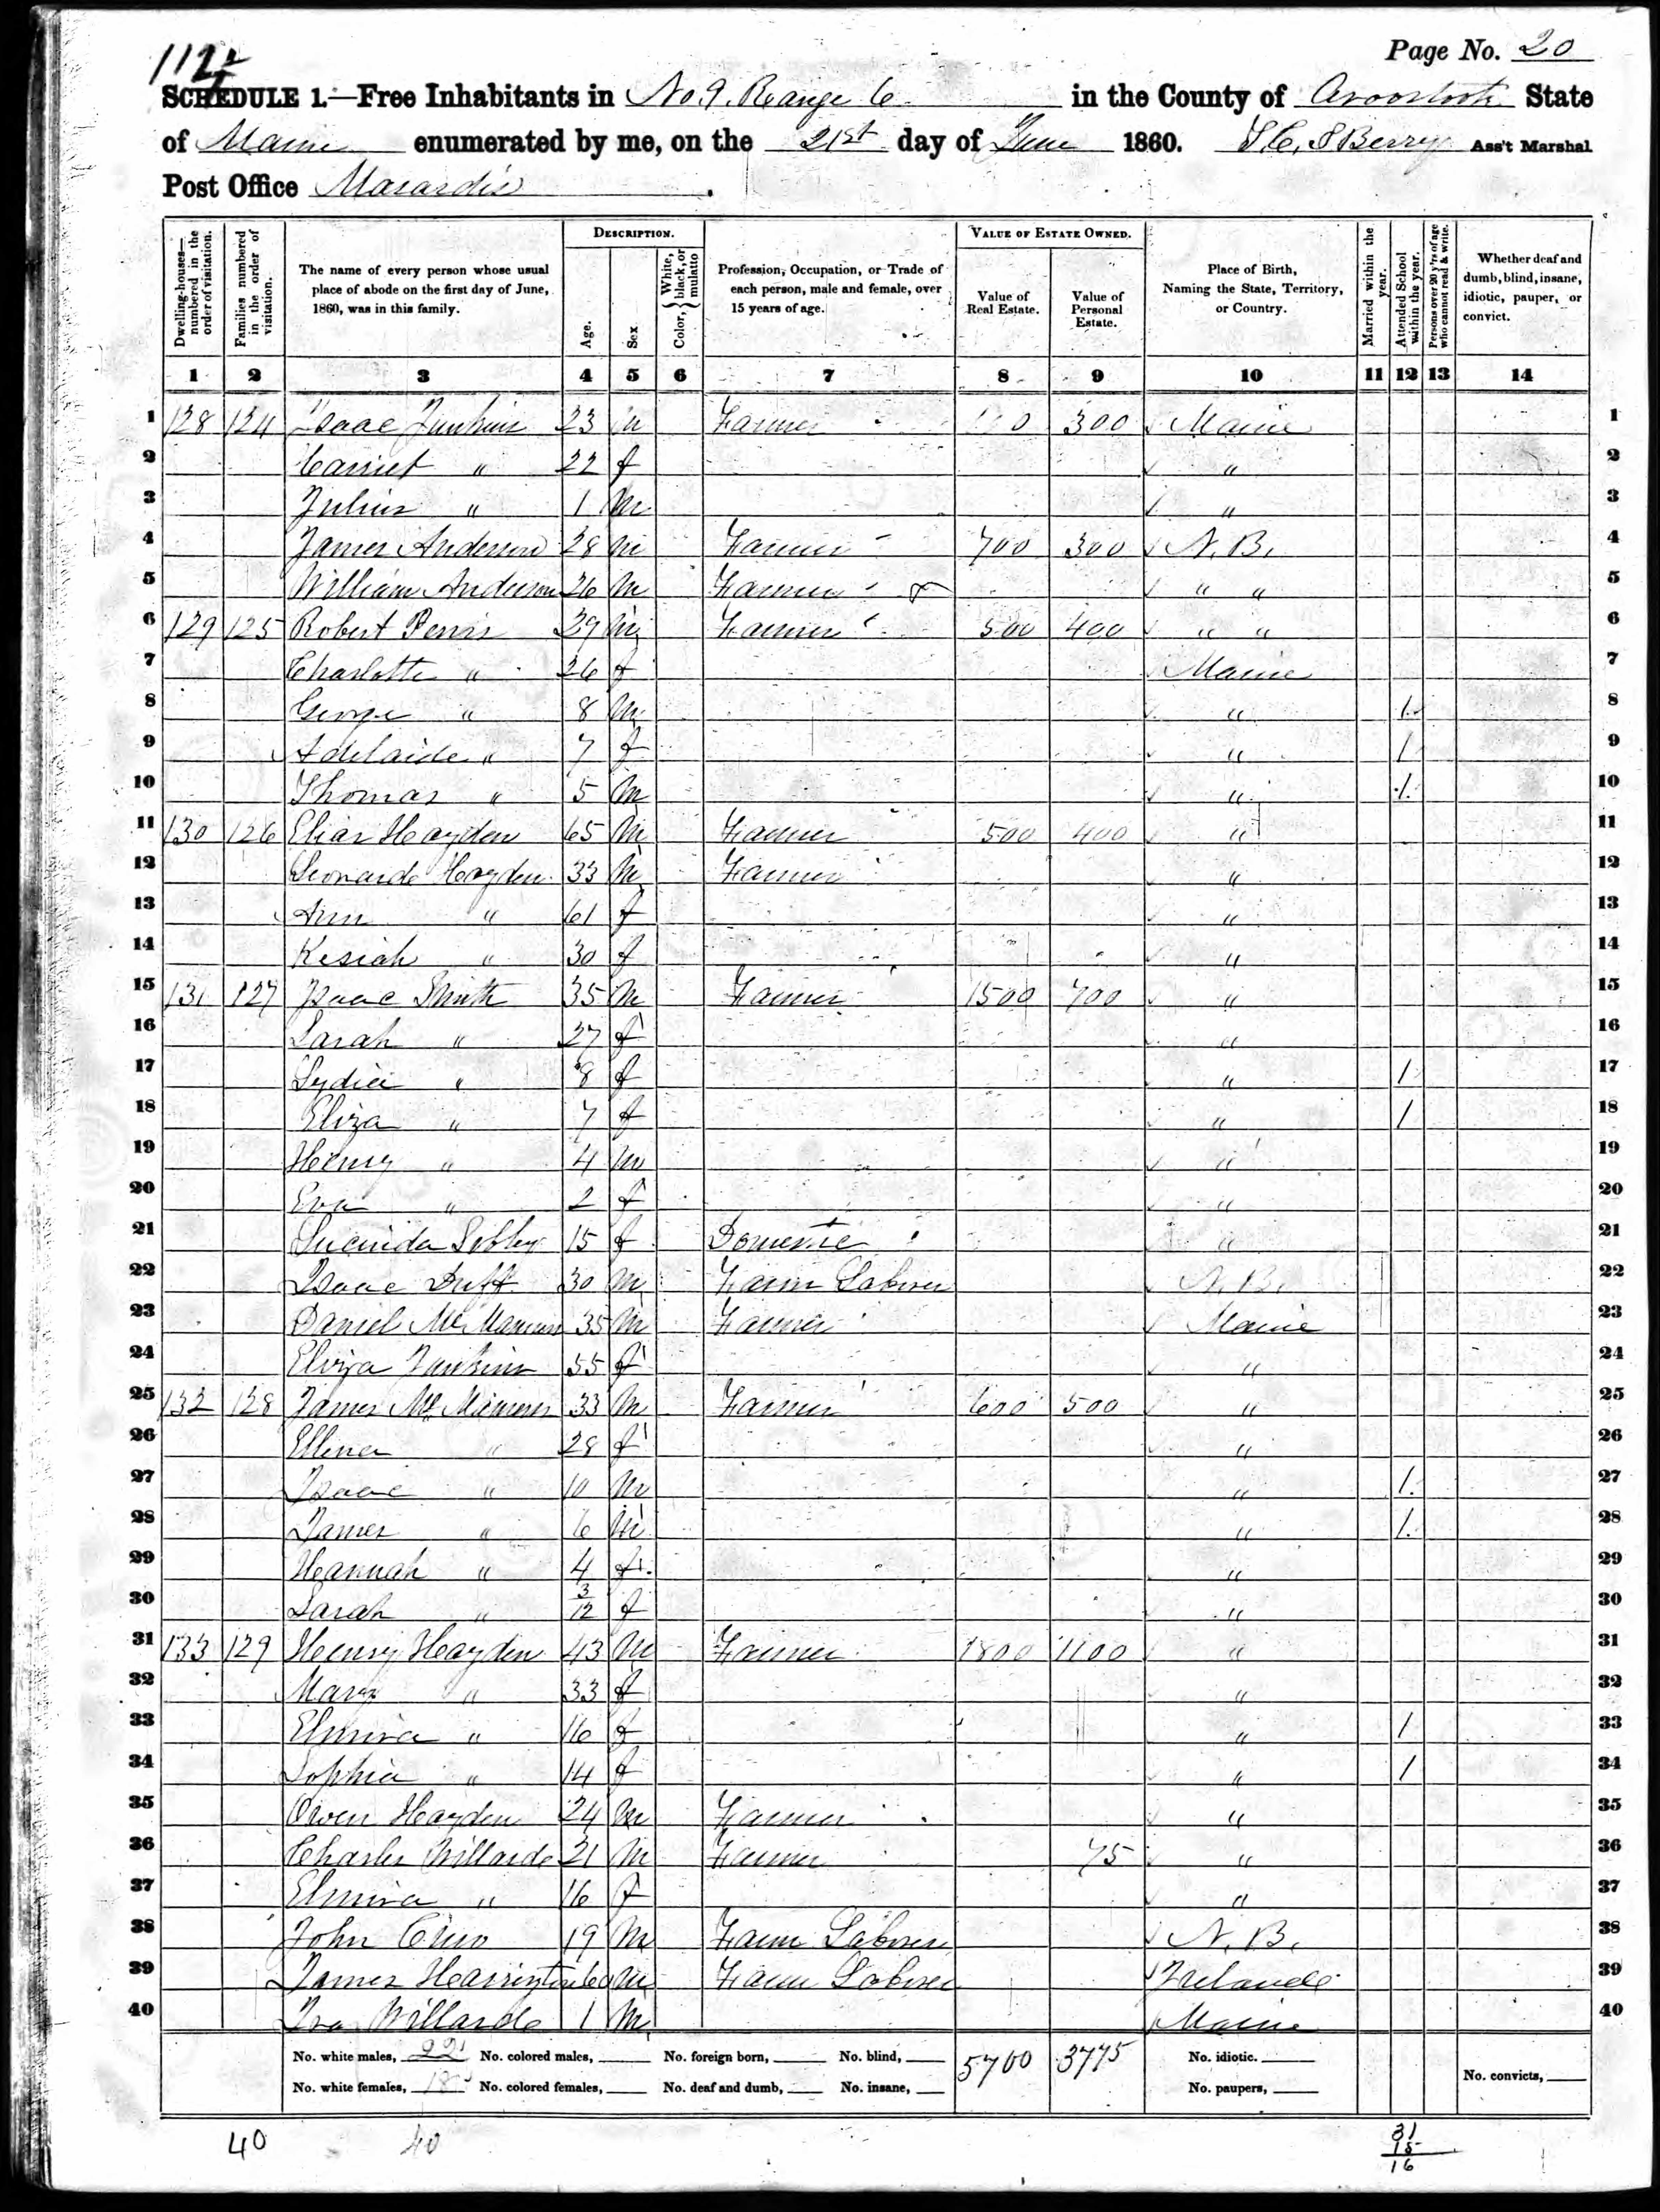 112
Page No. 20
SCHEDULE 1.—Free Inhabitants in No. 9. Range 6 in the County of Aroostook State
of Maine enumerated by me, on the 21st day of June 1860. S.C.S Berry Ass't Marshal
Post Office Masardis.
Dwelling-houses—numbered in the order of visitation.
Families numbered in the order of visitation.
The name of every person whose usual place of abode on the first day of June, 1860, was in this family.
DESCRIPTION.
Age.
Sex
Color, { White, black, or mulatto
Profession, Occupation, or Trade of each person, male and female, over 15 years of age.
VALUE OF ESTATE OWNED.
Value of Real Estate.
Value of Personal Estate.
Place of Birth, Naming the State, Territory, or Country.
Married within the year.
Attended School within the year.
Persons over 20 y'rs of age who cannot read & write.
Whether deaf and dumb, blind, insane, idiotic, pauper, or convict.
1 2 3 4 5 6 7 8 9 10 11 12 13 14
1 128 124 Isaac Junkins 23 m Farmer 300 Maine 1
2 Harriet " 22 f " 2
3 Julius " 1 m " 3
4 James Anderson 28 m Farmer 700 300 N. B. 4
5 William Anderson 26 m Farmer " " 5
6 129 125 Robert 29 m Farmer 500 400 " " 6
7 Charlotte " 26 f Maine 7
8 George " 8 m " 1 8
9 Adelaide " 7 f " 1 9
10 Thomas " 5 m " 1 10
11 130 126 Elias Hayden 65 m Farmer 500 400 " 11
12 Leonard Hayden 33 m Farmer " 12
13 Ann " 61 f " 13
14 Kesiah " 30 f " 14
15 131 127 Isaac Smith 35 m Farmer 1500 700 " 15
16 Sarah " 27 f " 16
17 Lydia " 8 f " 1 17
18 Eliza " 7 f " 1 18
19 Henry " 4 m " 19
20 Eva " 2 f " 20
21 Lucinda Libby 15 f Domestic " 21
22 Isaac Duff 30 m Farm Laborer N. B. 22
23 Daniel McManus 35 m Farmer Maine 23
24 Eliza Junkins 55 f " 24
25 132 128 James McManus 33 m Farmer 600 500 " 25
26 Ellena " 28 f " 26
27 Isaac " 10 m " 1 27
28 James " 6 m " 1 28
29 Hannah " 4 f " 29
30 Sarah " 3/12 f " 30
31 133 129 Henry Hayden 43 m Farmer 1800 1100 " 31
32 Mary " 33 f " 32
33 Elmira " 16 f " 1 33
34 Sophia " 14 f " 1 34
35 Owen Hayden 24 m Farmer " 35
36 Charles Willard 21 m Farmer 75 " 36
37 Elmira " 16 f " 37
38 John 19 m Farm Laborer N. B. 38
39 James Harrington 60 m Farm Laborer Ireland 39
40 Ira Willard 1 m Maine 40
No. white males, 22 No. colored males, No. foreign born, No. blind, 5700 3775 No. idiotic.
No. white females, 18 No. colored females, No. deaf and dumb, No. insane, No. paupers, No. convicts,
40 40
31
15
16